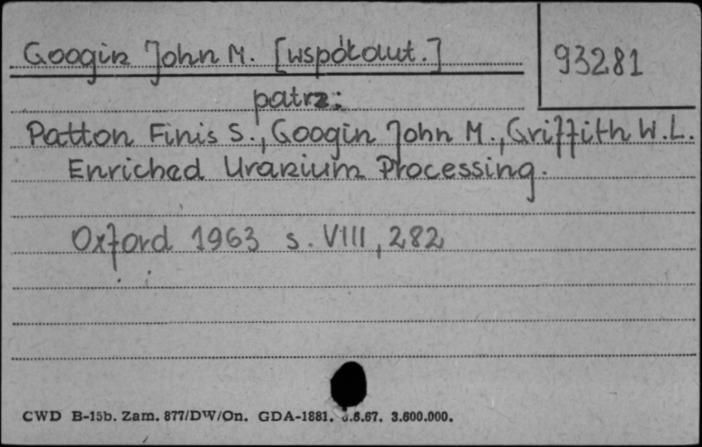 Googin John M. [współaut.]
93281
patrz:
Patton Finis S., Googin John M., Griffith W.L.
Enriched Uranium Processing.
Oxford 1963 s. VIII, 282
CWD B-15b. Zam. 877/DW/On. GDA-1881. .6.67. 3.600.000.